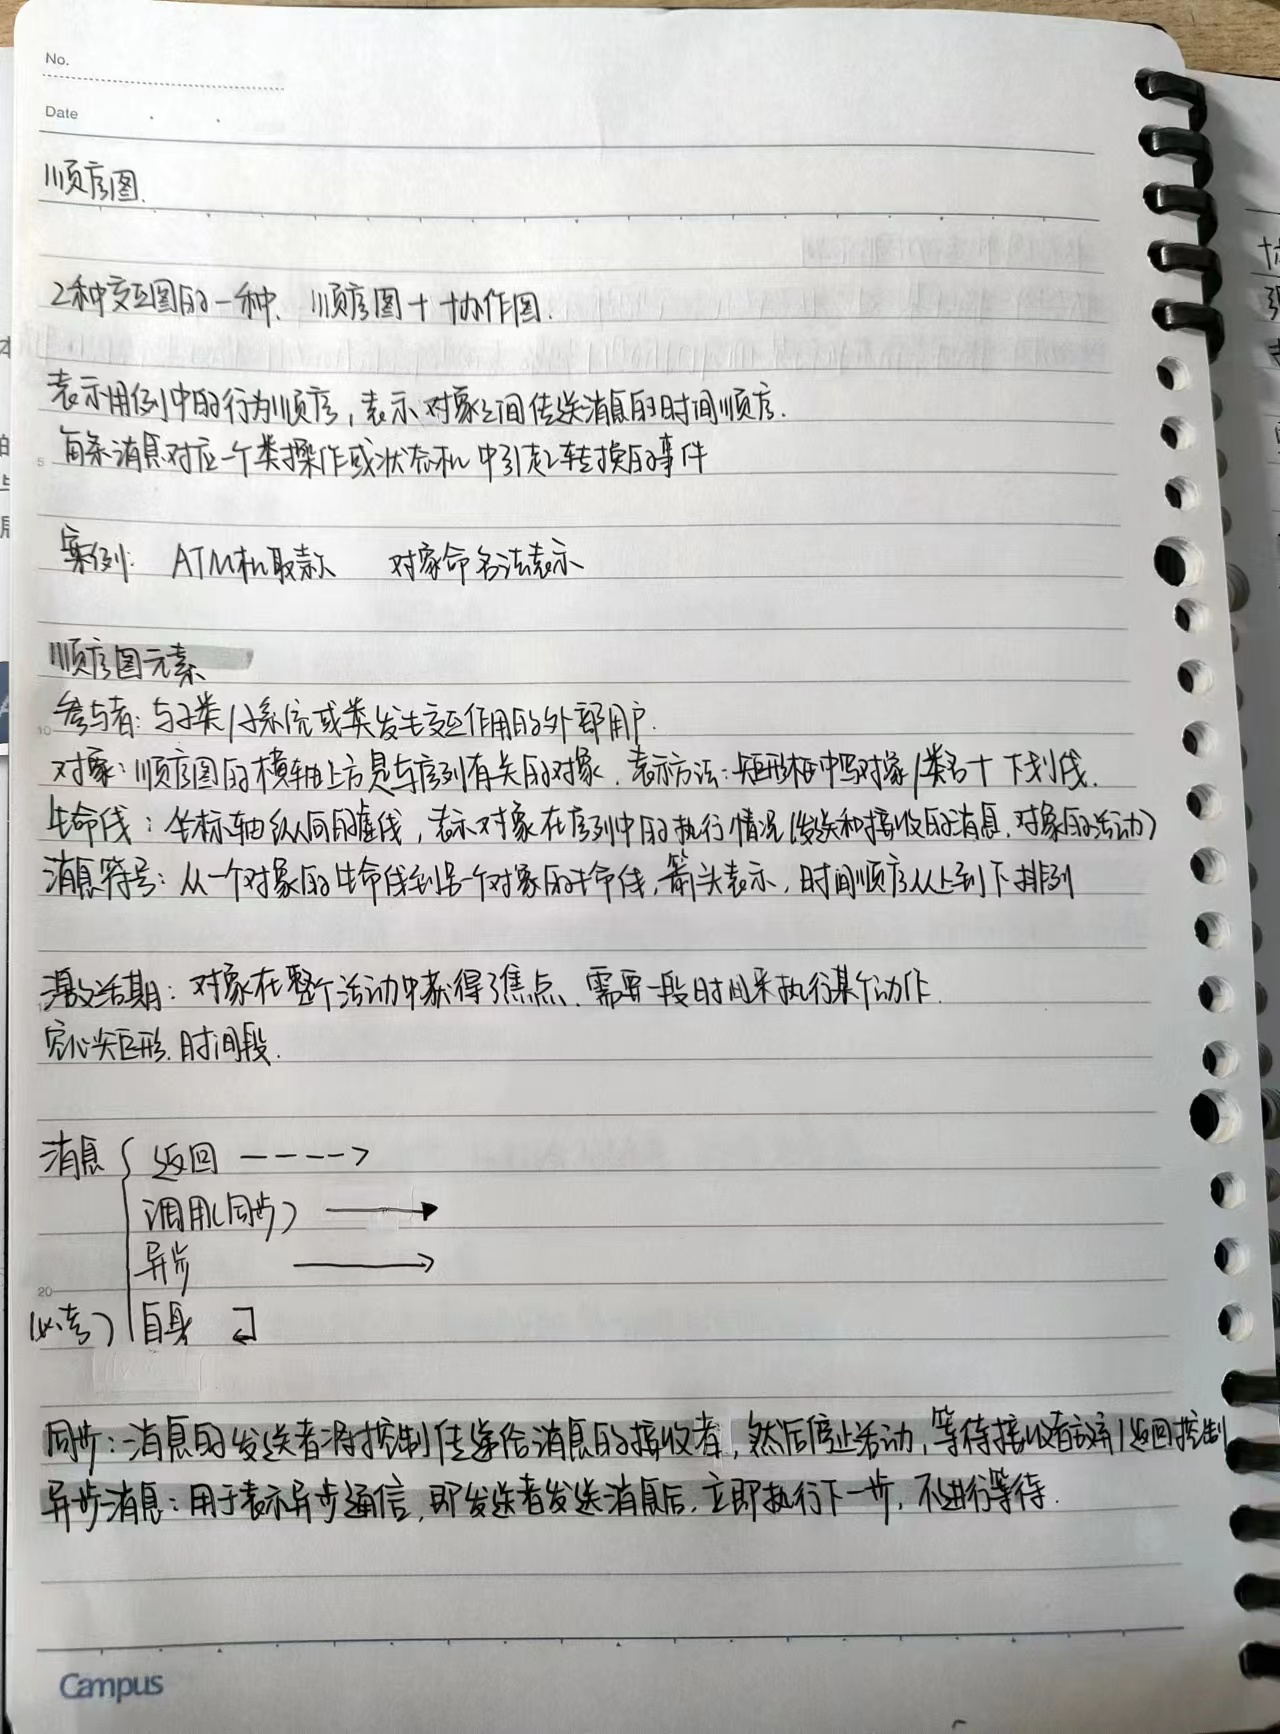 No.
Date
顺序图.
2种交互图的一种、顺序图+协作图.
表示用例中的行为顺序,表示对象之间传送消息的时间顺序.
每条消息对应一个类操作或状态机中引起转换的事件
5
案例: ATM机取款 对象命名法表示
顺序图元素
参与者:与子类/子系统或类发生交互作用的外部用户.
10
对象:顺序图的横轴上方是与序列有关的对象.表示方法:矩形框中写对象/类名+下划线.
生命线:坐标轴纵向的虚线,表示对象在序列中的执行情况(发送和接收的消息,对象的活动)
消息符号:从一个对象的生命线到另一个对象的生命线,箭头表示,时间顺序从上到下排列
激活期:对象在整个活动中获得了焦点、需要一段时间来执行某个动作.
空心矩形.时间段.
消息 { 返回 ---->
调用(同步)
异步
20
(必考) 自身
同步:消息的发送者将控制传递给消息的接收者,然后停止活动,等待接收者放弃/返回控制
异步消息:用于表示异步通信,即发送者发送消息后,立即执行下一步,不进行等待.
Campus